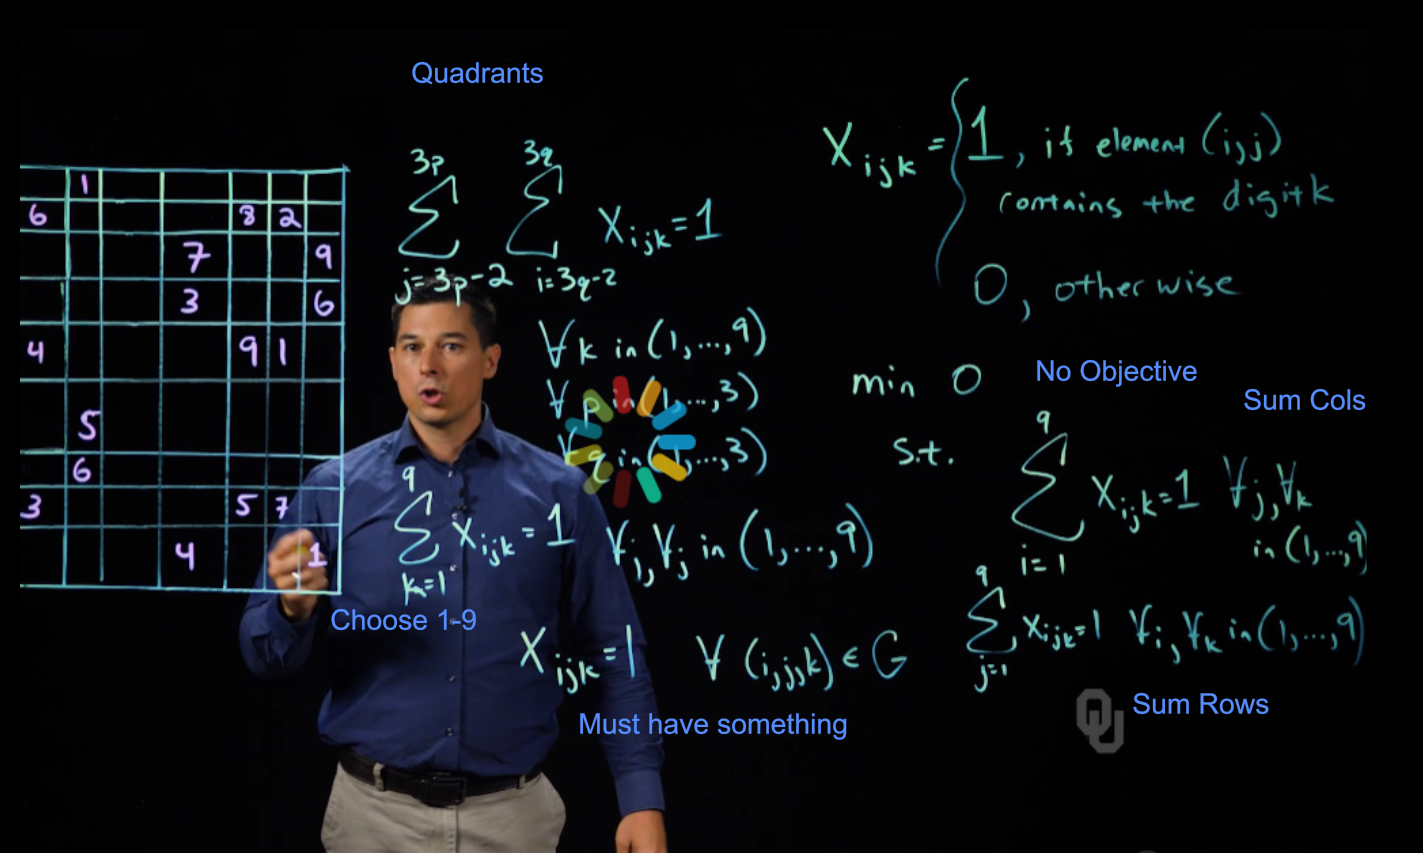 Quadrants
1
6 8 2
7 9
3 6
4 9 1
5
6
3 5 7
4 1
3p 3q
∑ ∑ x_ijk = 1
j=3p-2 i=3q-2
∀ k in (1,...,9)
∀ p in (1,...,3)
∀ q in (1,...,3)
9
∑ x_ijk = 1 ∀i, ∀j in (1,...,9)
k=1
Choose 1-9
x_ijk = 1 ∀ (i,j,k) ∈ G
Must have something
x_ijk = { 1, if element (i,j)
contains the digit k
0, otherwise
min 0
No Objective
Sum Cols
s.t.
9
∑ x_ijk = 1 ∀j, ∀k
i=1 in (1,...,9)
9
∑ x_ijk = 1 ∀i, ∀k in (1,...,9)
j=1
Sum Rows
OU